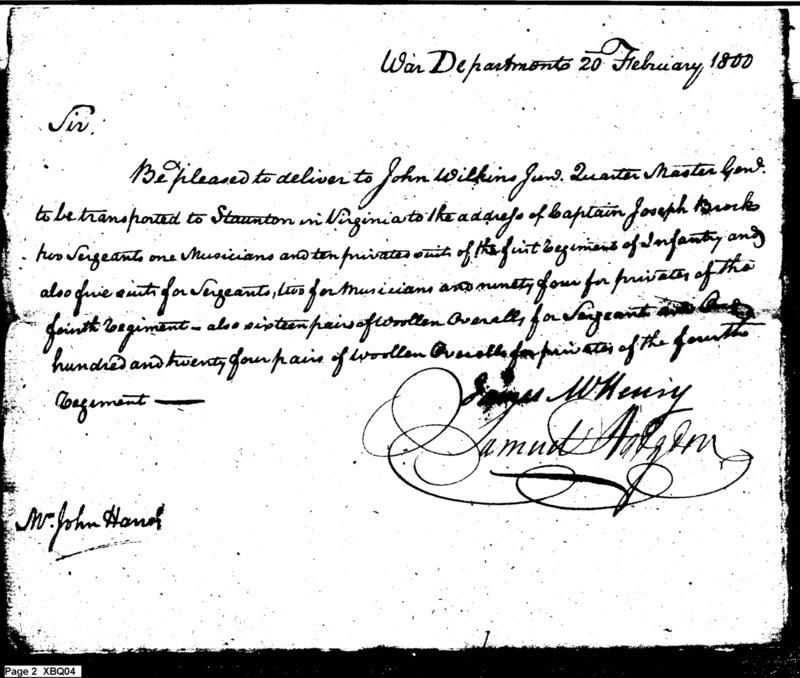 War Department 20 February 1800
Sir,
Be pleased to deliver to John Wilkins Junr. Quarter Master Genl.
to be transported to Staunton in Virginia to the address of Captain Joseph Brock
two Sergeants one Musicians and ten privates suits of the first Regiment of Infantry and
also five suits for Sergeants, two for Musicians and ninety four for privates of the
fourth Regiment – also sixteen pairs of Woollen Overalls for Sergeants and One
hundred and twenty four pairs of Woollen Overalls for privates of the fourth
Regiment —
James McHenry
Samuel Hodgdon
Mr. John Harris
Page 2 XBQ04